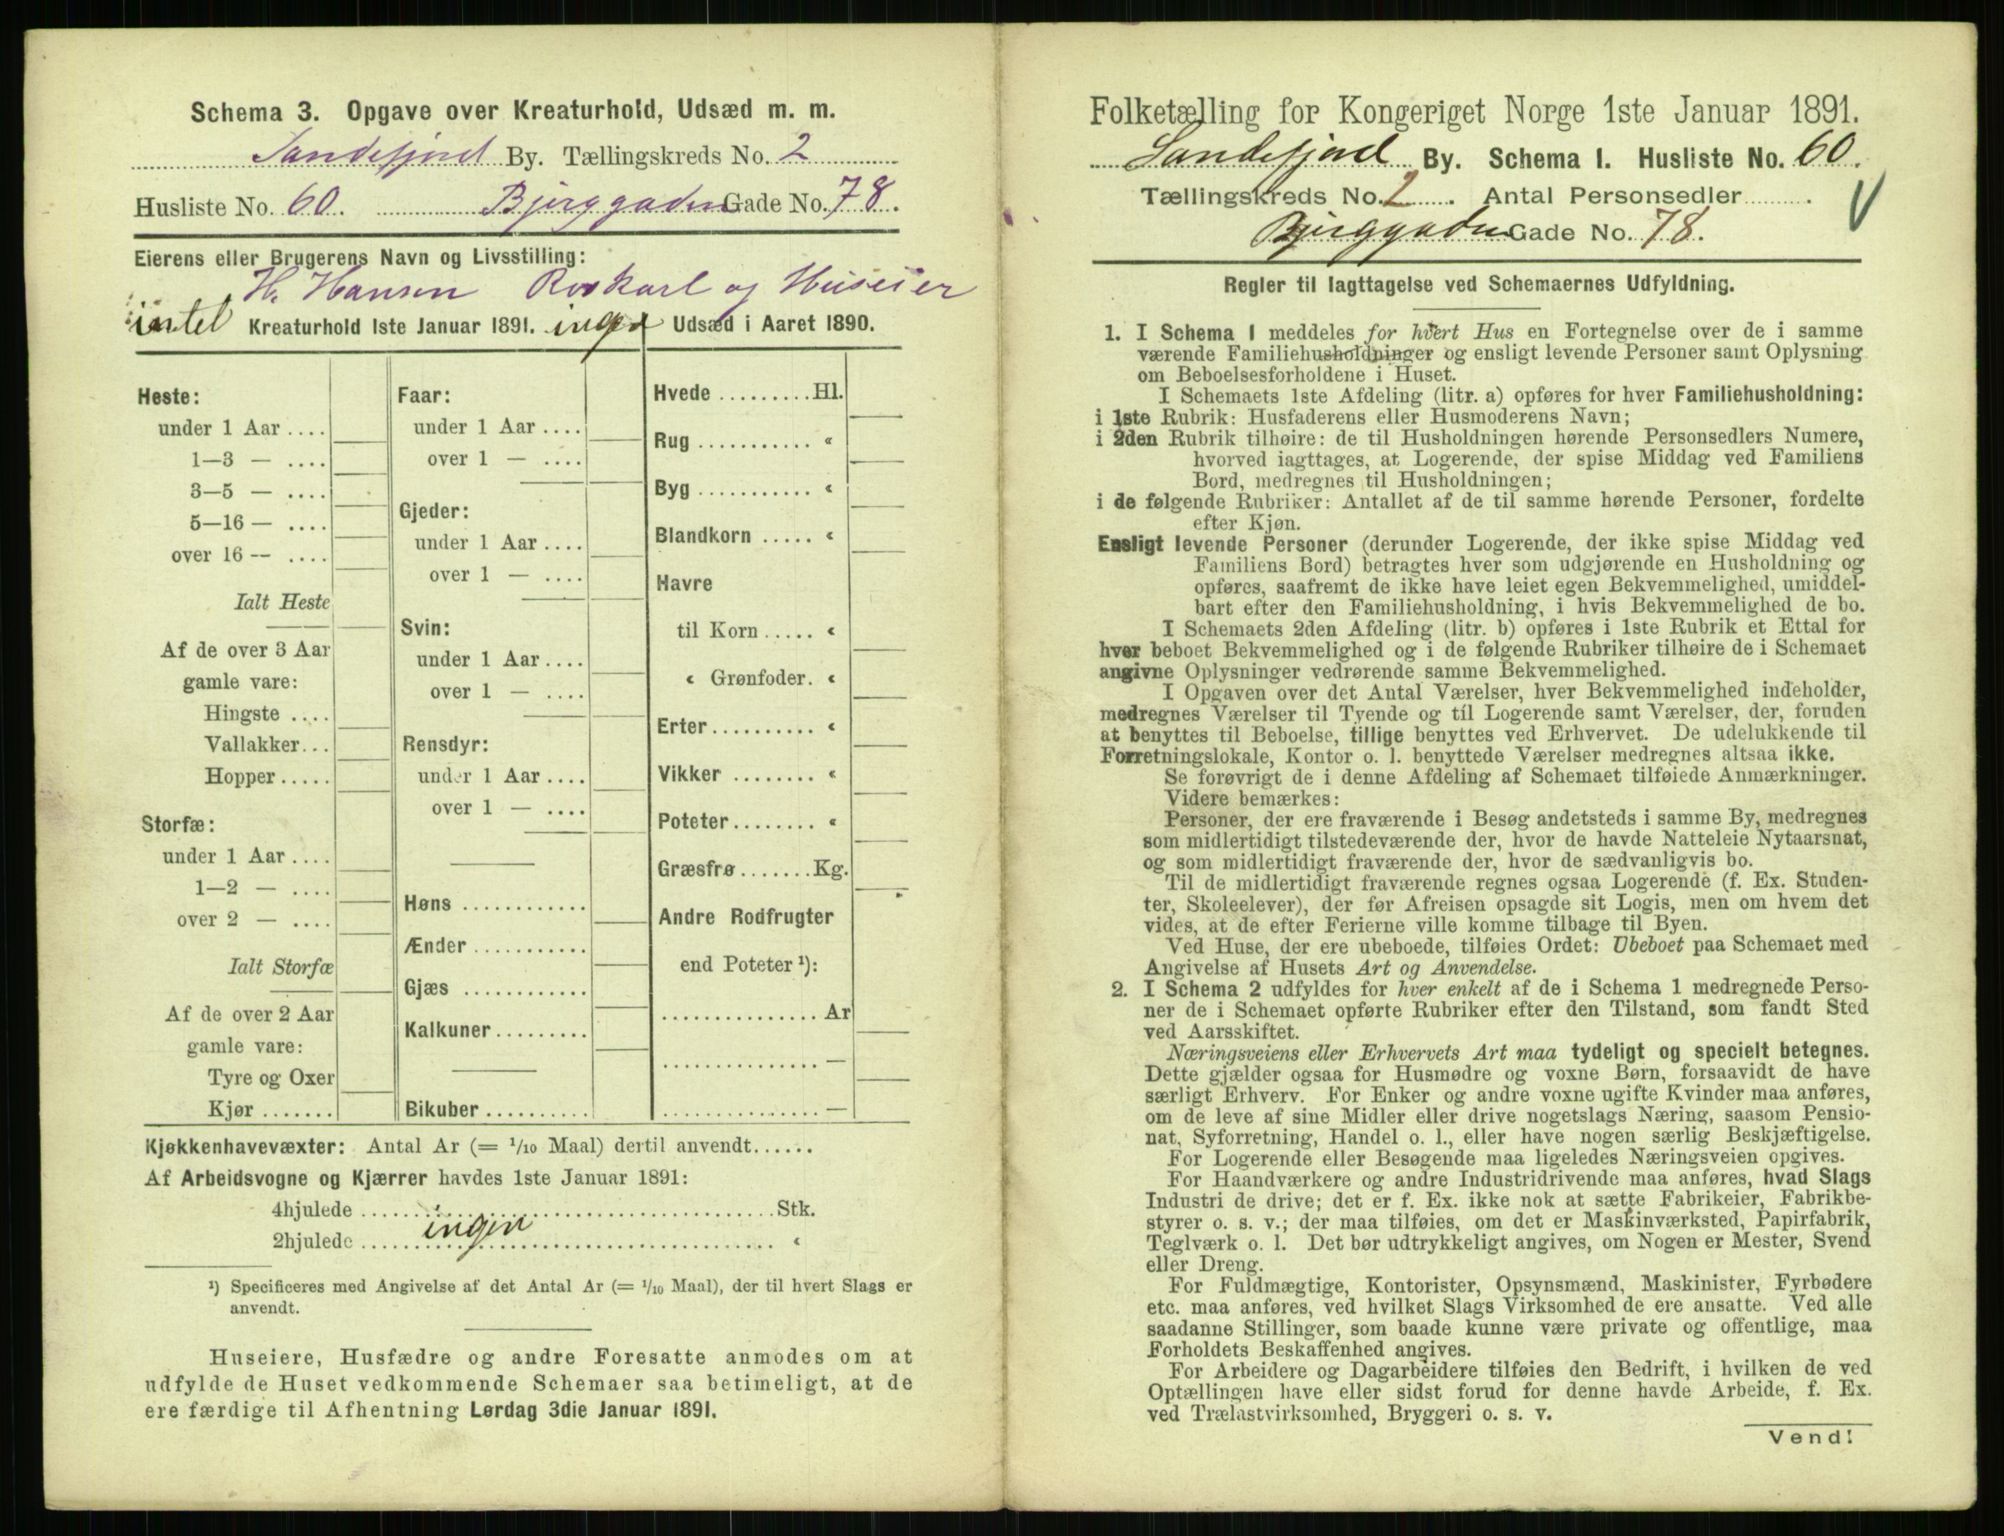 Schema 3. Opgave over Kreaturhold, Udsæd m. m.
Sandefjord By. Tællingskreds No. 2
Husliste No. 60. Bjerggaden Gade No. 78.
Eierens eller Brugerens Navn og Livsstilling:
H. Hansen og Huseier
intet Kreaturhold 1ste Januar 1891. ingen Udsæd i Aaret 1890.
Heste:
under 1 Aar ....
1—3 — ....
3—5 — ....
5—16 — ....
over 16 — ....
Ialt Heste
Af de over 3 Aar
gamle vare:
Hingste ....
Vallakker...
Hopper.....
Storfæ:
under 1 Aar ....
1—2 — ....
over 2 — ....
Ialt Storfæ
Af de over 2 Aar
gamle vare:
Tyre og Oxer
Kjør .......
Faar:
under 1 Aar ....
over 1 — ....
Gjeder:
under 1 Aar ....
over 1 — ....
Svin:
under 1 Aar....
over 1 — ....
Rensdyr:
under 1 Aar ....
over 1 — ....
Høns ............
Ænder ...........
Gjæs ............
Kalkuner.........
Bikuber ..........
Hvede .........Hl.
Rug ........... «
Byg ........... «
Blandkorn ..... «
Havre
til Korn ..... «
« Grønfoder. «
Erter.......... «
Vikker ........ «
Poteter........ «
Græsfrø .......Kg.
Andre Rodfrugter
end Poteter ¹):
............... Ar
............... —
............... —
Kjøkkenhavevæxter: Antal Ar (= 1/10 Maal) dertil anvendt......
Af Arbeidsvogne og Kjærrer havdes 1ste Januar 1891:
4hjulede ........................................Stk.
2hjulede ....ingen.................................... «
¹) Specificeres med Angivelse af det Antal Ar (= 1/10 Maal), der til hvert Slags er
anvendt.
Huseiere, Husfædre og andre Foresatte anmodes om at
udfylde de Huset vedkommende Schemaer saa betimeligt, at de
ere færdige til Afhentning Lørdag 3die Januar 1891.
Folketælling for Kongeriget Norge 1ste Januar 1891.
Sandefjord By. Schema 1. Husliste No. 60.
Tællingskreds No. 2. Antal Personsedler.......... .
Bjerggaden Gade No. 78.
Regler til Iagttagelse ved Schemaernes Udfyldning.
1. I Schema 1 meddeles for hvert Hus en Fortegnelse over de i samme
værende Familiehusholdninger og ensligt levende Personer samt Oplysning
om Beboelsesforholdene i Huset.
I Schemaets 1ste Afdeling (litr. a) opføres for hver Familiehusholdning:
i 1ste Rubrik: Husfaderens eller Husmoderens Navn;
i 2den Rubrik tilhøire: de til Husholdningen hørende Personsedlers Numere,
hvorved iagttages, at Logerende, der spise Middag ved Familiens
Bord, medregnes til Husholdningen;
i de følgende Rubriker: Antallet af de til samme hørende Personer, fordelte
efter Kjøn.
Ensligt levende Personer (derunder Logerende, der ikke spise Middag ved
Familiens Bord) betragtes hver som udgjørende en Husholdning og
opføres, saafremt de ikke have leiet egen Bekvemmelighed, umiddel-
bart efter den Familiehusholdning, i hvis Bekvemmelighed de bo.
I Schemaets 2den Afdeling (litr. b) opføres i 1ste Rubrik et Ettal for
hver beboet Bekvemmelighed og i de følgende Rubriker tilhøire de i Schemaet
angivne Oplysninger vedrørende samme Bekvemmelighed.
I Opgaven over det Antal Værelser, hver Bekvemmelighed indeholder,
medregnes Værelser til Tyende og til Logerende samt Værelser, der, foruden
at benyttes til Beboelse, tillige benyttes ved Erhvervet. De udelukkende til
Forretningslokale, Kontor o. l. benyttede Værelser medregnes altsaa ikke.
Se forøvrigt de i denne Afdeling af Schemaet tilføiede Anmærkninger.
Videre bemærkes:
Personer, der ere fraværende i Besøg andetsteds i samme By, medregnes
som midlertidigt tilstedeværende der, hvor de havde Natteleie Nytaarsnat,
og som midlertidigt fraværende der, hvor de sædvanligvis bo.
Til de midlertidigt fraværende regnes ogsaa Logerende (f. Ex. Studen-
ter, Skoleelever), der før Afreisen opsagde sit Logis, men om hvem det
vides, at de efter Ferierne ville komme tilbage til Byen.
Ved Huse, der ere ubeboede, tilføies Ordet: Ubeboet paa Schemaet med
Angivelse af Husets Art og Anvendelse.
2. I Schema 2 udfyldes for hver enkelt af de i Schema 1 medregnede Perso-
ner de i Schemaet opførte Rubriker efter den Tilstand, som fandt Sted
ved Aarsskiftet.
Næringsveiens eller Erhvervets Art maa tydeligt og specielt betegnes.
Dette gjælder ogsaa for Husmødre og voxne Børn, forsaavidt de have
særligt Erhverv. For Enker og andre voxne ugifte Kvinder maa anføres,
om de leve af sine Midler eller drive nogetslags Næring, saasom Pensio-
nat, Syforretning, Handel o. l., eller have nogen særlig Beskjæftigelse.
For Logerende eller Besøgende maa ligeledes Næringsveien opgives.
For Haandværkere og andre Industridrivende maa anføres, hvad Slags
Industri de drive; det er f. Ex. ikke nok at sætte Fabrikeier, Fabrikbe-
styrer o. s. v.; der maa tilføies, om det er Maskinværksted, Papirfabrik,
Teglværk o. l. Det bør udtrykkeligt angives, om Nogen er Mester, Svend
eller Dreng.
For Fuldmægtige, Kontorister, Opsynsmænd, Maskinister, Fyrbødere
etc. maa anføres, ved hvilket Slags Virksomhed de ere ansatte. Ved alle
saadanne Stillinger, som baade kunne være private og offentlige, maa
Forholdets Beskaffenhed angives.
For Arbeidere og Dagarbeidere tilføies den Bedrift, i hvilken de ved
Optællingen have eller sidst forud for denne havde Arbeide, f. Ex.
ved Trælastvirksomhed, Bryggeri o. s. v.
Vend!